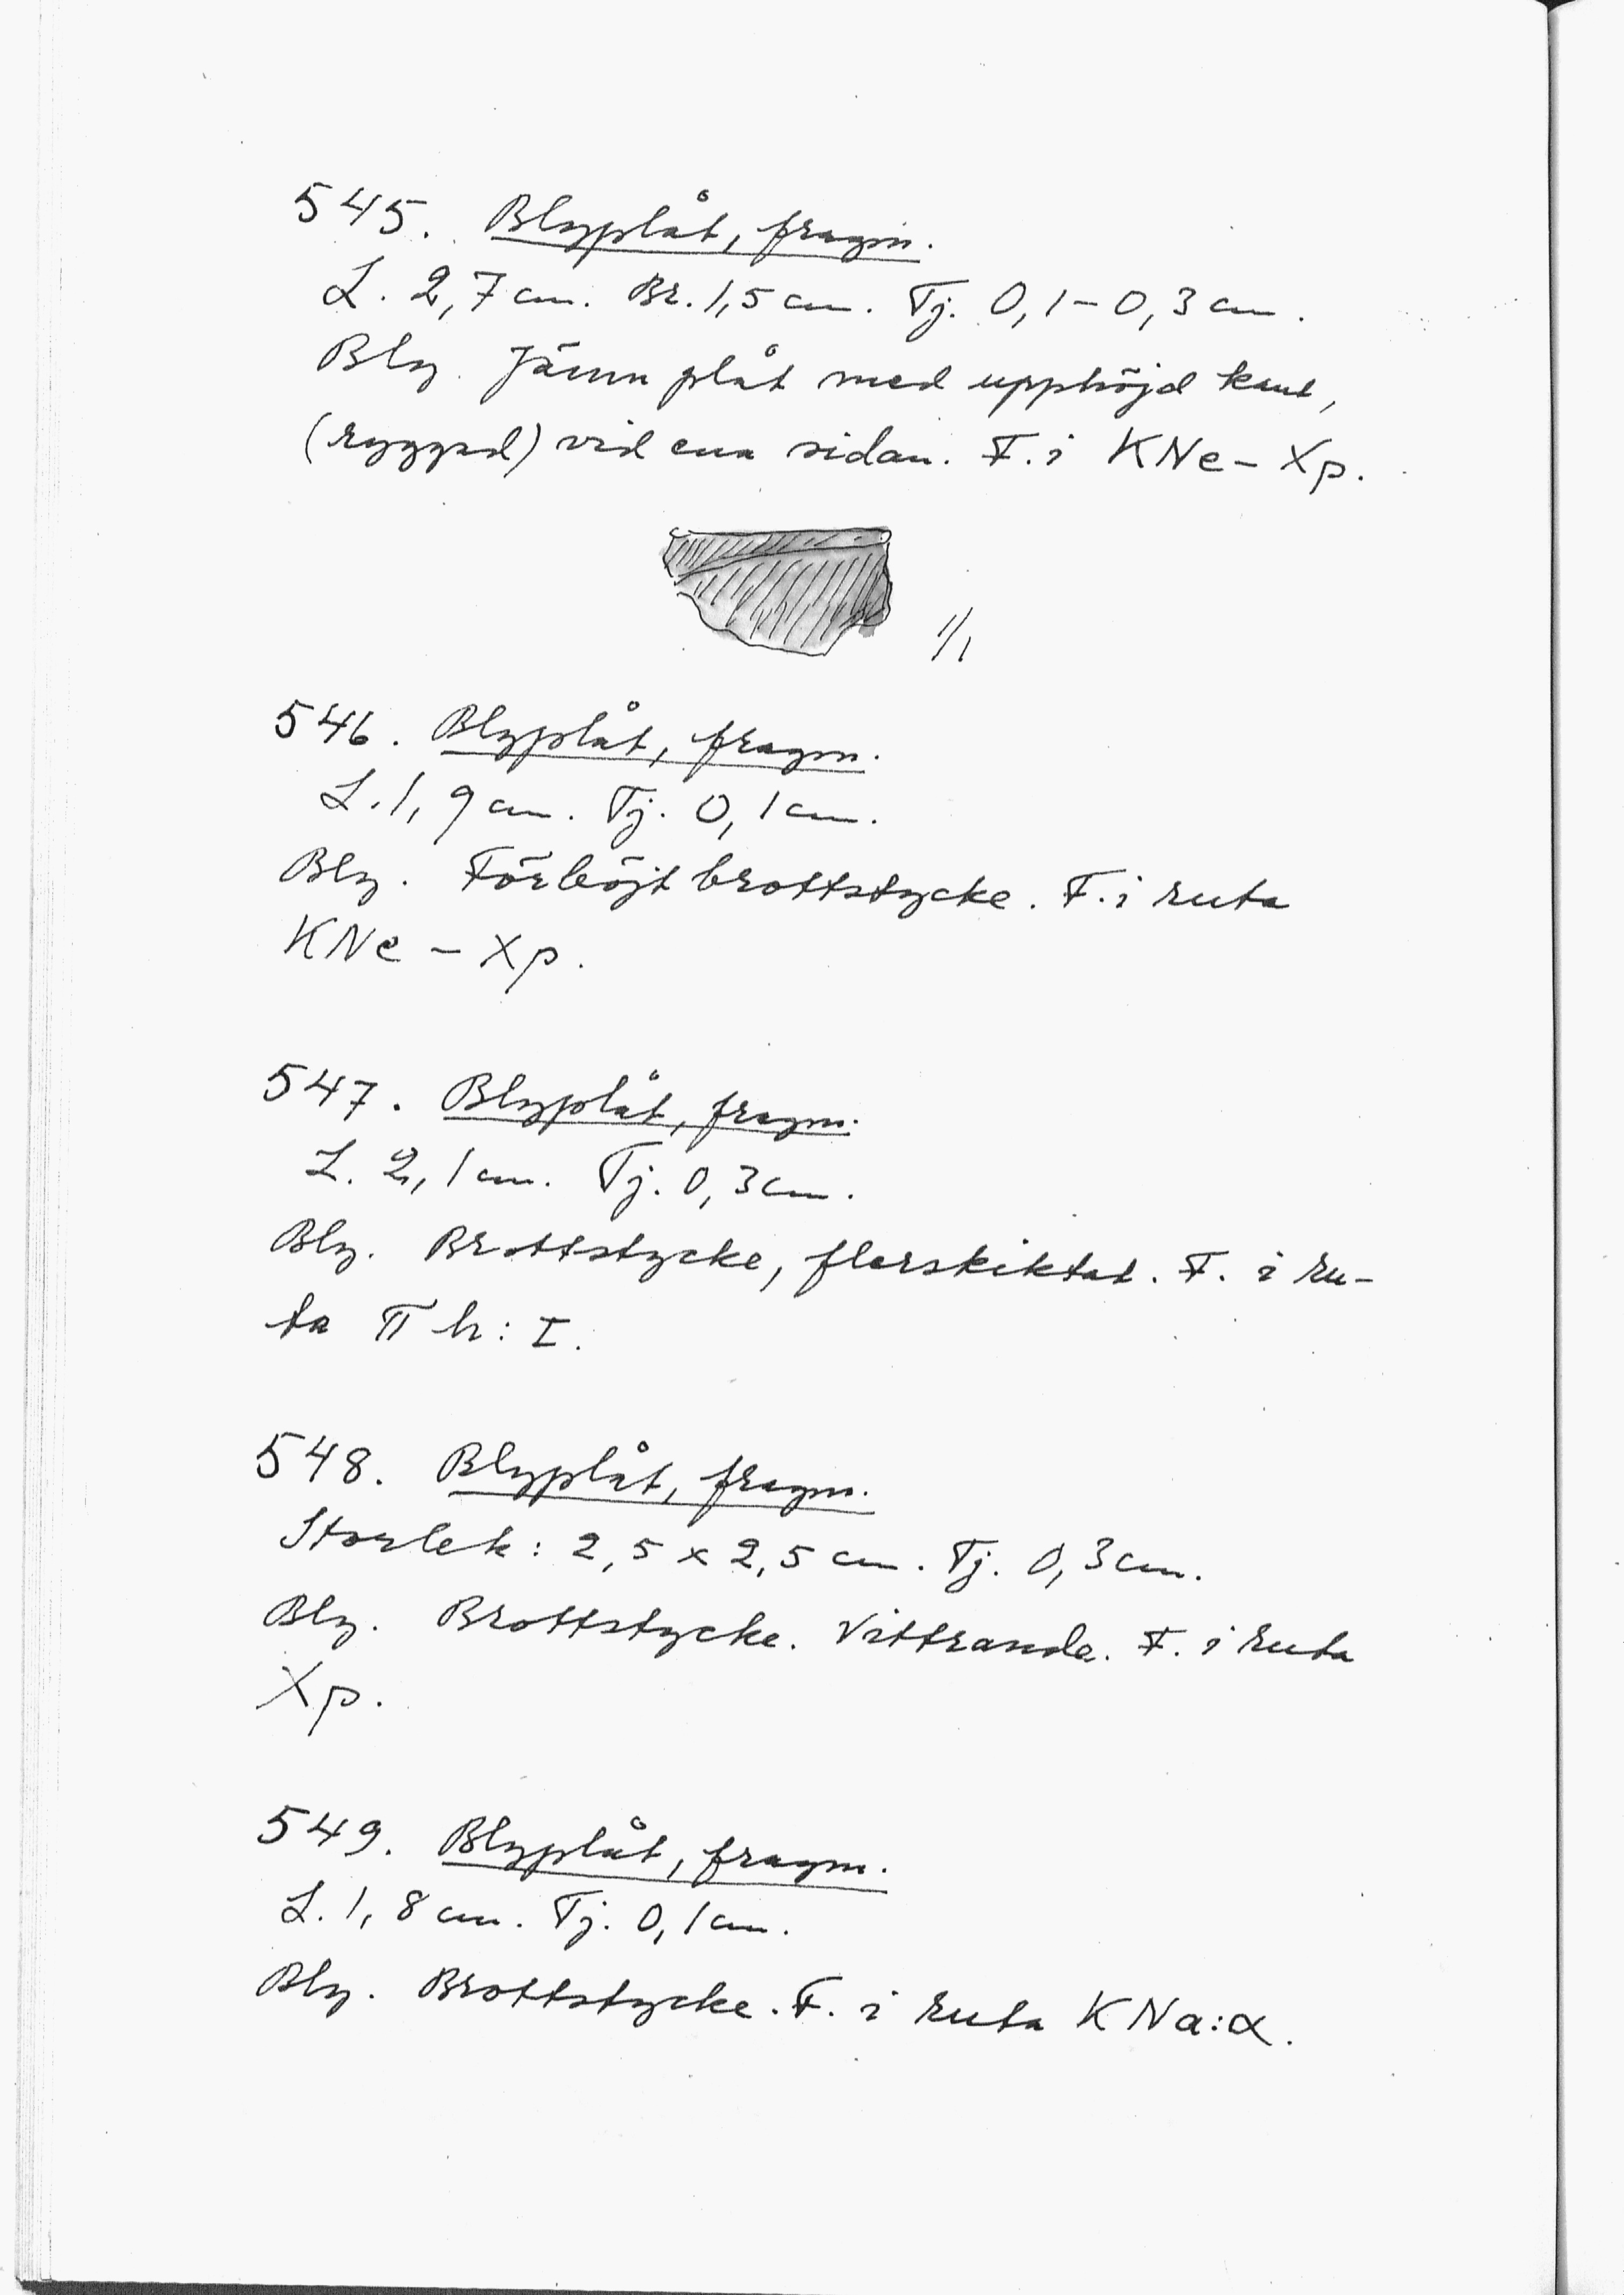 545. Blyplåt, fragm.
L. 2,7 cm. Br. 1,5 cm. Tj. 0,1-0,3 cm.
Bly. Jämn plåt med upphöjd kant,
(ryggad) vid ena sidan. F. i KNe-Xp.
1/1
546. Blyplåt, fragm.
L. 1,9 cm. Tj. 0,1 cm.
Bly. Förböjt brottstycke. F. i ruta
KNe-Xp.
547. Blyplåt, fragm.
L. 2,1 cm. Tj. 0,3 cm.
Bly. Brottstycke, flerskiktat. F. i ru-
ta Πh:I.
548. Blyplåt, fragm.
Storlek: 2,5 x 2,5 cm. Tj. 0,3 cm.
Bly. Brottstycke. Vittrande. F. i ruta
Xp.
549. Blyplåt, fragm.
L. 1,8 cm. Tj. 0,1 cm.
Bly. Brottstycke. F. i ruta KNa:α.